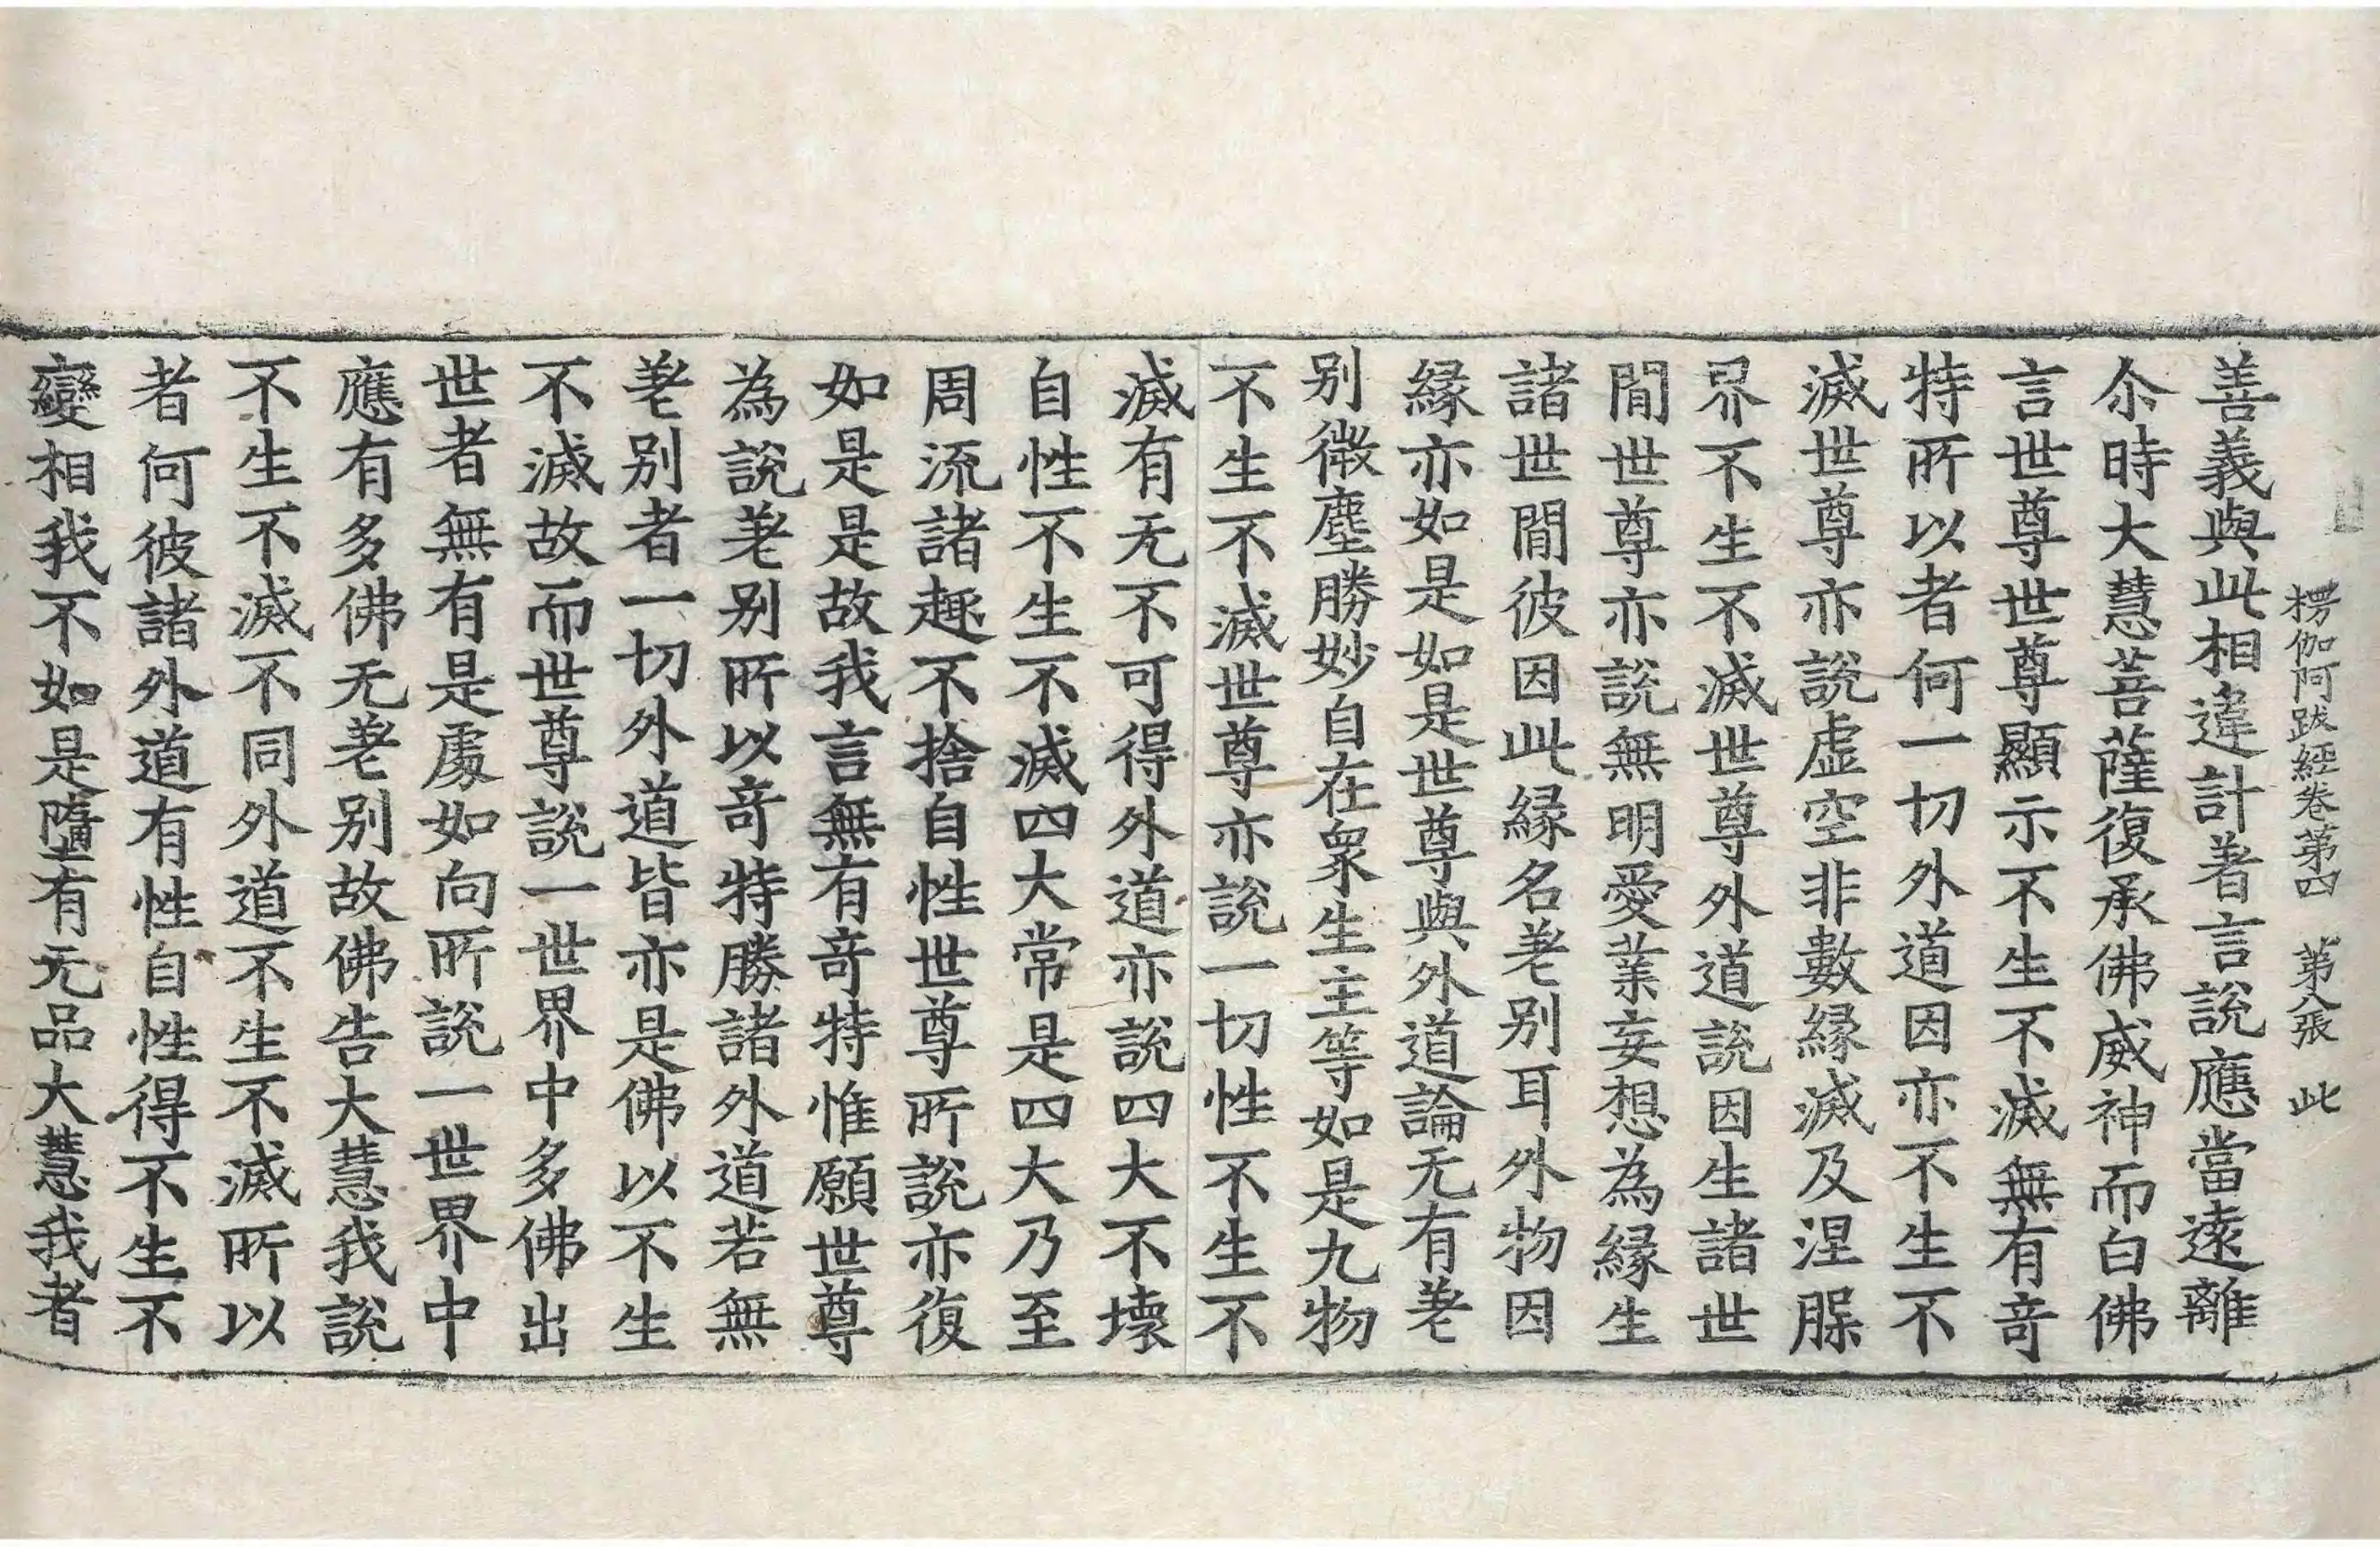 楞伽阿跋經卷第四 第八張 此
善義與此相違計著言說應當遠離
尒時大慧菩薩復承佛威神而白佛
言世尊世尊顯示不生不滅無有竒
特所以者何一切外道因亦不生不
滅世尊亦說虛空非數緣滅及涅槃
界不生不滅世尊外道說因生諸世
間世尊亦說無明愛業妄想為緣生
諸世間彼因此緣名差別耳外物因
緣亦如是如是世尊與外道論无有差
別微塵勝妙自在衆生主等如是九物
不生不滅世尊亦說一切性不生不
滅有无不可得外道亦說四大不壞
自性不生不滅四大常是四大乃至
周流諸趣不捨自性世尊所說亦復
如是是故我言無有竒特惟願世尊
為說差別所以竒特勝諸外道若無
差別者一切外道皆亦是佛以不生
不滅故而世尊說一世界中多佛出
世者無有是處如向所說一世界中
應有多佛无差別故佛告大慧我說
不生不滅不同外道不生不滅所以
者何彼諸外道有性自性得不生不
變相我不如是墮有无品大慧我者